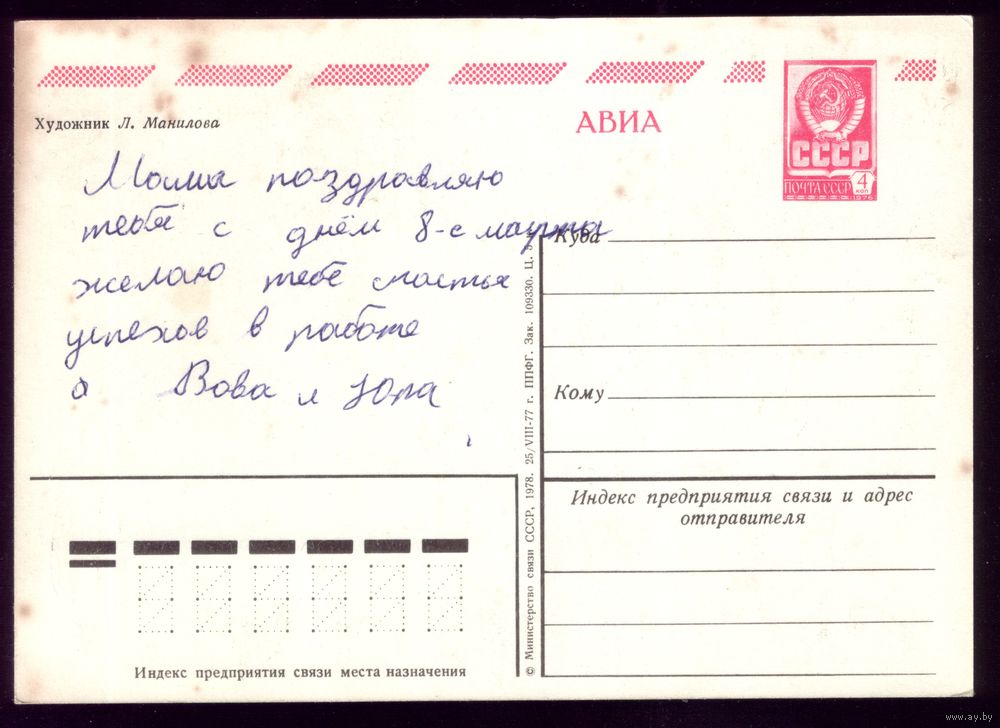 Художник Л. Манилова
АВИА
СССР
ПОЧТА СССР
4
КОП
1976
Мама поздравляю
тебя с днём 8-е марта
желаю тебе счастья
успехов в работе
Вова и Юра
Куда
Кому
Индекс предприятия связи и адрес
отправителя
Индекс предприятия связи места назначения
© Министерство связи СССР, 1978. 25/VIII-77 г. ППФГ. Зак. 109330. Ц.
www.ay.by